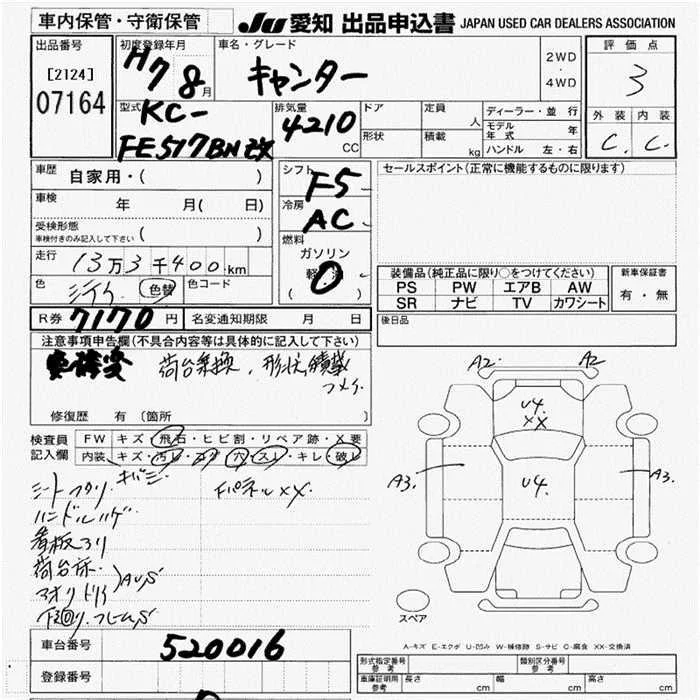 車内保管・守衛保管
JU 愛知 出品申込書 JAPAN USED CAR DEALERS ASSOCIATION
出品番号
[2124]
07164
初度登録年月
H7 8月
車名・グレード
キャンター
2WD
・
4WD
評価点
3
外装 内装
C. C.
型式
KC-
FE517BN改
排気量
4210
CC
ドア
形状
定員
人
積載
kg
ディーラー・並行
モデル年式 年
ハンドル 左・右
車歴 自家用・( )
車検 年 月( 日)
受検形態
車検付きのみ記入して下さい ( )
走行 13万3千400km
色 色替 色コード
シフト
F5
冷房
AC
燃料
ガソリン
軽油
( 0 )
セールスポイント(正常に機能するものに限ります)
装備品(純正品に限り○をつけてください)
PS PW エアB AW
SR ナビ TV カワシート
新車保証書
有・無
R券 7170円 名変通知期限 月 日
後日品
注意事項申告欄(不具合内容等は具体的に記入して下さい)
荷台乗換、形状、積載
修復歴 有(箇所 )
検査員
記入欄
FW キズ・飛石・ヒビ割・リペア跡・X要
内装 キズ・汚レ・コゲ・穴・スレ・キレ・破レ
シートヘタリ キバミ Fパネル XX.
ハンドルハゲ
看板ヨリ
荷台床
アオリ AUS
下回り.フレームS
A2 A2
U4.
XX
A3. U4. A3.
スペア
A-キズ E-エクボ U-凹み W-補修跡 S-サビ C-腐食 XX-交換済
車台番号 520016
登録番号
形式指定番号 参考
類別区分番号 参考
車庫証明用 参考 長さ cm 幅 cm 高さ cm